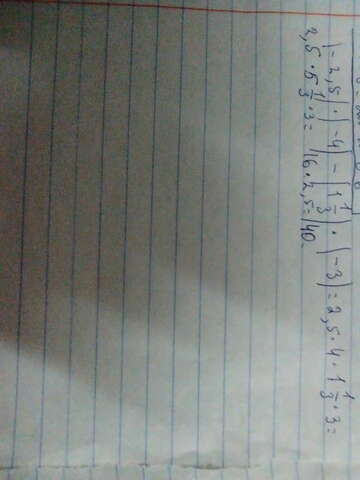 |-2,5| · |-4| - |1 1/3| · |-3| = 2,5 · 4 · 1 1/3 · 3 =
2,5 · 5 1/3 · 3 = 16 · 2,5 = 40